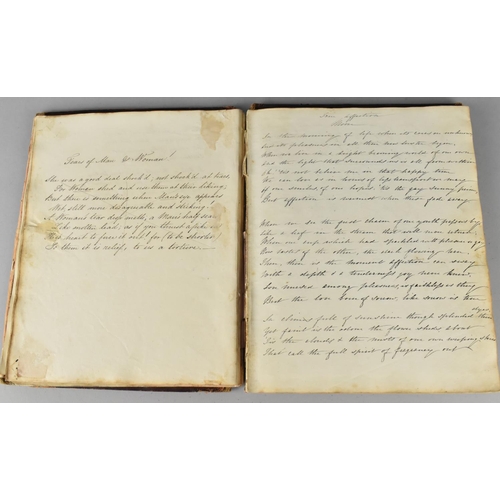 Tears of Man & Woman!
She was a good deal shock'd, not shock'd at tears
For Women shed and use them at their liking;
But there is something when Man's eye appears
Wet, still more disagreeable and striking:
A Woman's tear drop melts, a Man's half sears
Like molten lead, as if you thrust a pike in
His heart to force it out, for (to be shorter)
To them it is relief, to us a torture.
On affection
Moore
In the morning of life when its cares are unknown
And all pleasures in all their new lustre begin
When we live in a bright beaming world of our own
And the light that surrounds us is all from within
Oh 'tis not believe me in that happy time
We can love as in hours of less transport we may
Of our smiles of our hopes 'tis the gay sunny prime
But affection is warmest when these fade away
When we see the first of our youth pass us by
Like a leaf on the stream that will never return
When our cup which had sparkled with pleasure so high
First tastes of the other, the dark flowing urn
Then, then is the moment affection can sway
With a depth & a tenderness joy never knew
Love nursed among pleasures is faithless as they
But the love born of sorrow like sorrow is true
In climes full of sunshine though splendid their dyes
Yet faint is the odour the flowers shed about
'Tis the clouds & the mists of our own weeping skies
That call the full spirit of fragrancy out